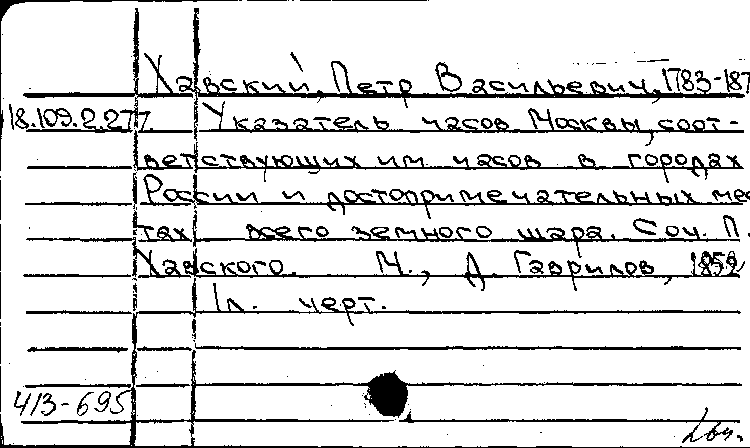 Хавский, Петр Васильевич, 1783-187
18.109.2.277. Указатель часов Москвы, соот-
ветствующих им часов в городах
России и достопримечательных мес
тах всего земного шара. Соч. П.
Хавского. М., А. Гаврилов,
1 л. черт.
413-695